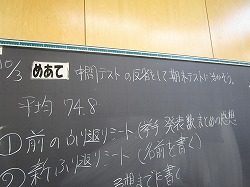 10/3 めあて 中間テストの反省をして期末テストに活かそう。
平均 74.8
①前のふり返りシート(挙手 発表数 まとめの感想
②新ふり返りシート(名前を書く)
感想まで書く